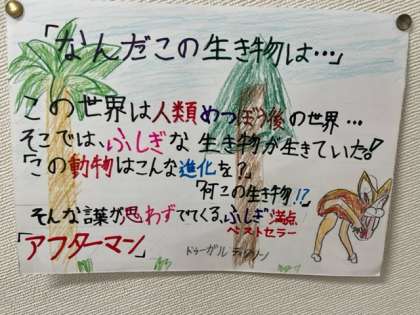 「なんだこの生き物は…」
この世界は人類めつぼう後の世界…
そこでは、ふしぎな生き物が生きていた!!
「この動物はこんな進化を?」
「何この生き物!?」
そんな言葉が思わずでてくる、ふしぎ満点
ベストセラー
「アフターマン」
ドゥーガル ディクソン